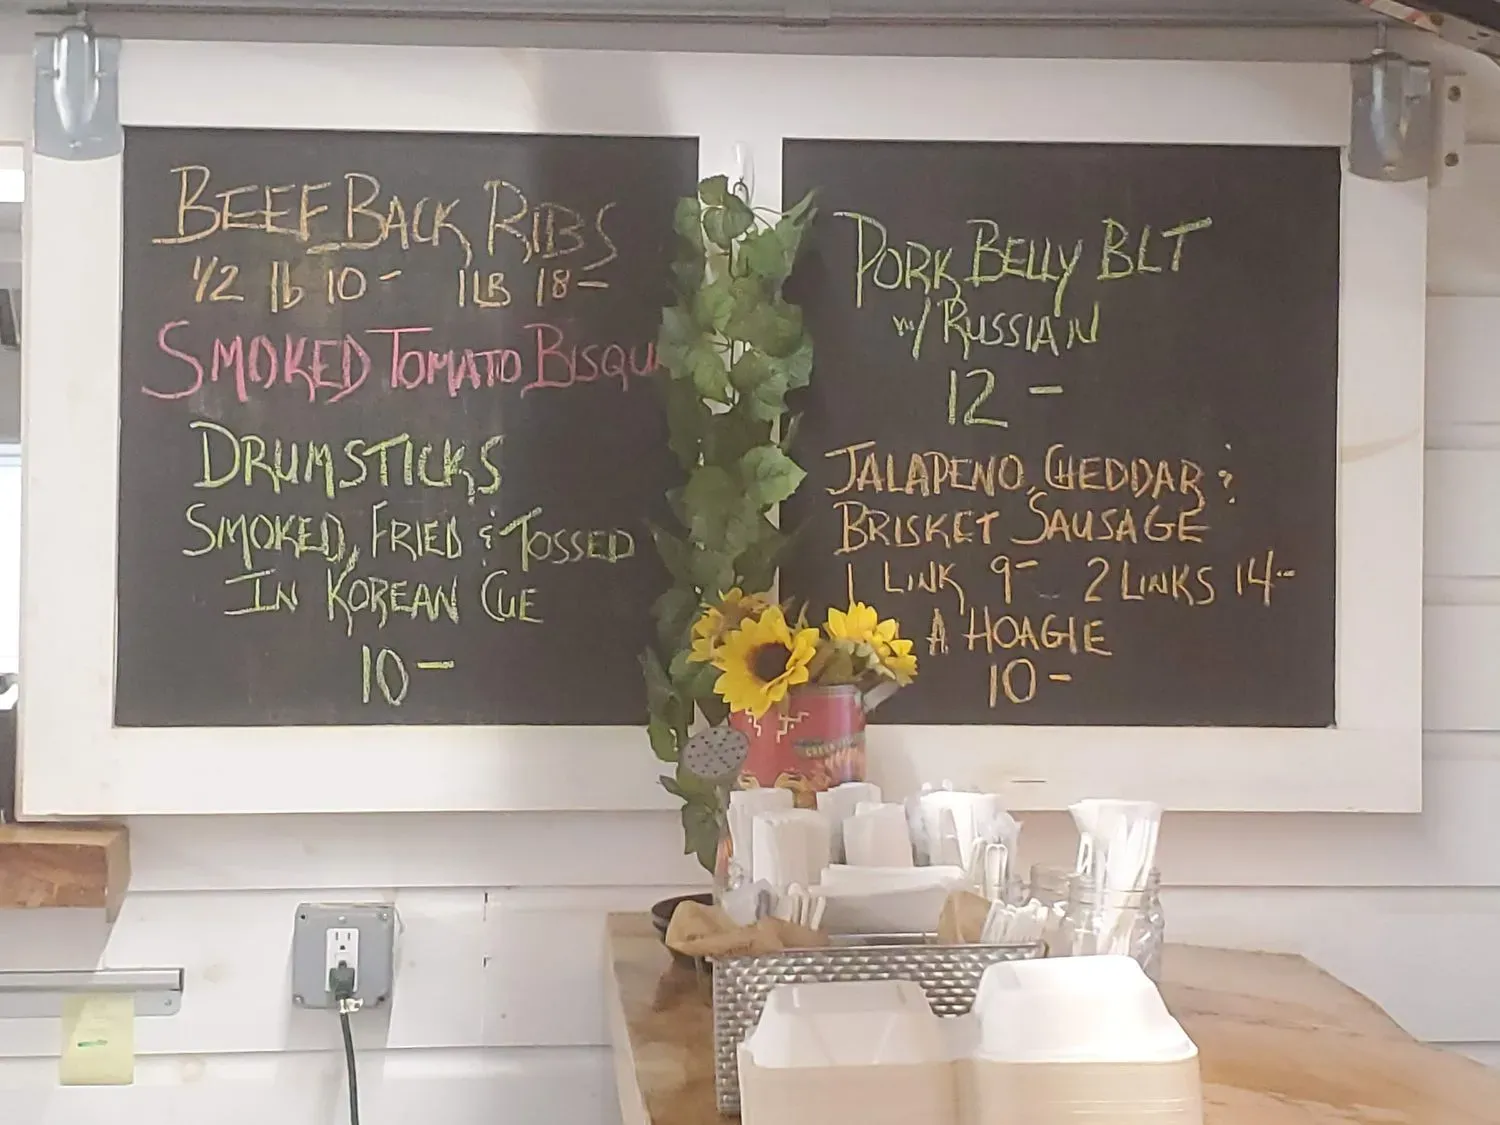 BEEF BACK RIBS
1/2 lb 10- 1LB 18-
SMOKED TOMATO BISQU
DRUMSTICKS
SMOKED, FRIED & TOSSED
IN KOREAN CUE
10-
PORK BELLY BLT
w/ RUSSIAN
12-
JALAPENO, CHEDDAR &
BRISKET SAUSAGE
1 LINK 9- 2 LINKS 14--
A HOAGIE
10-